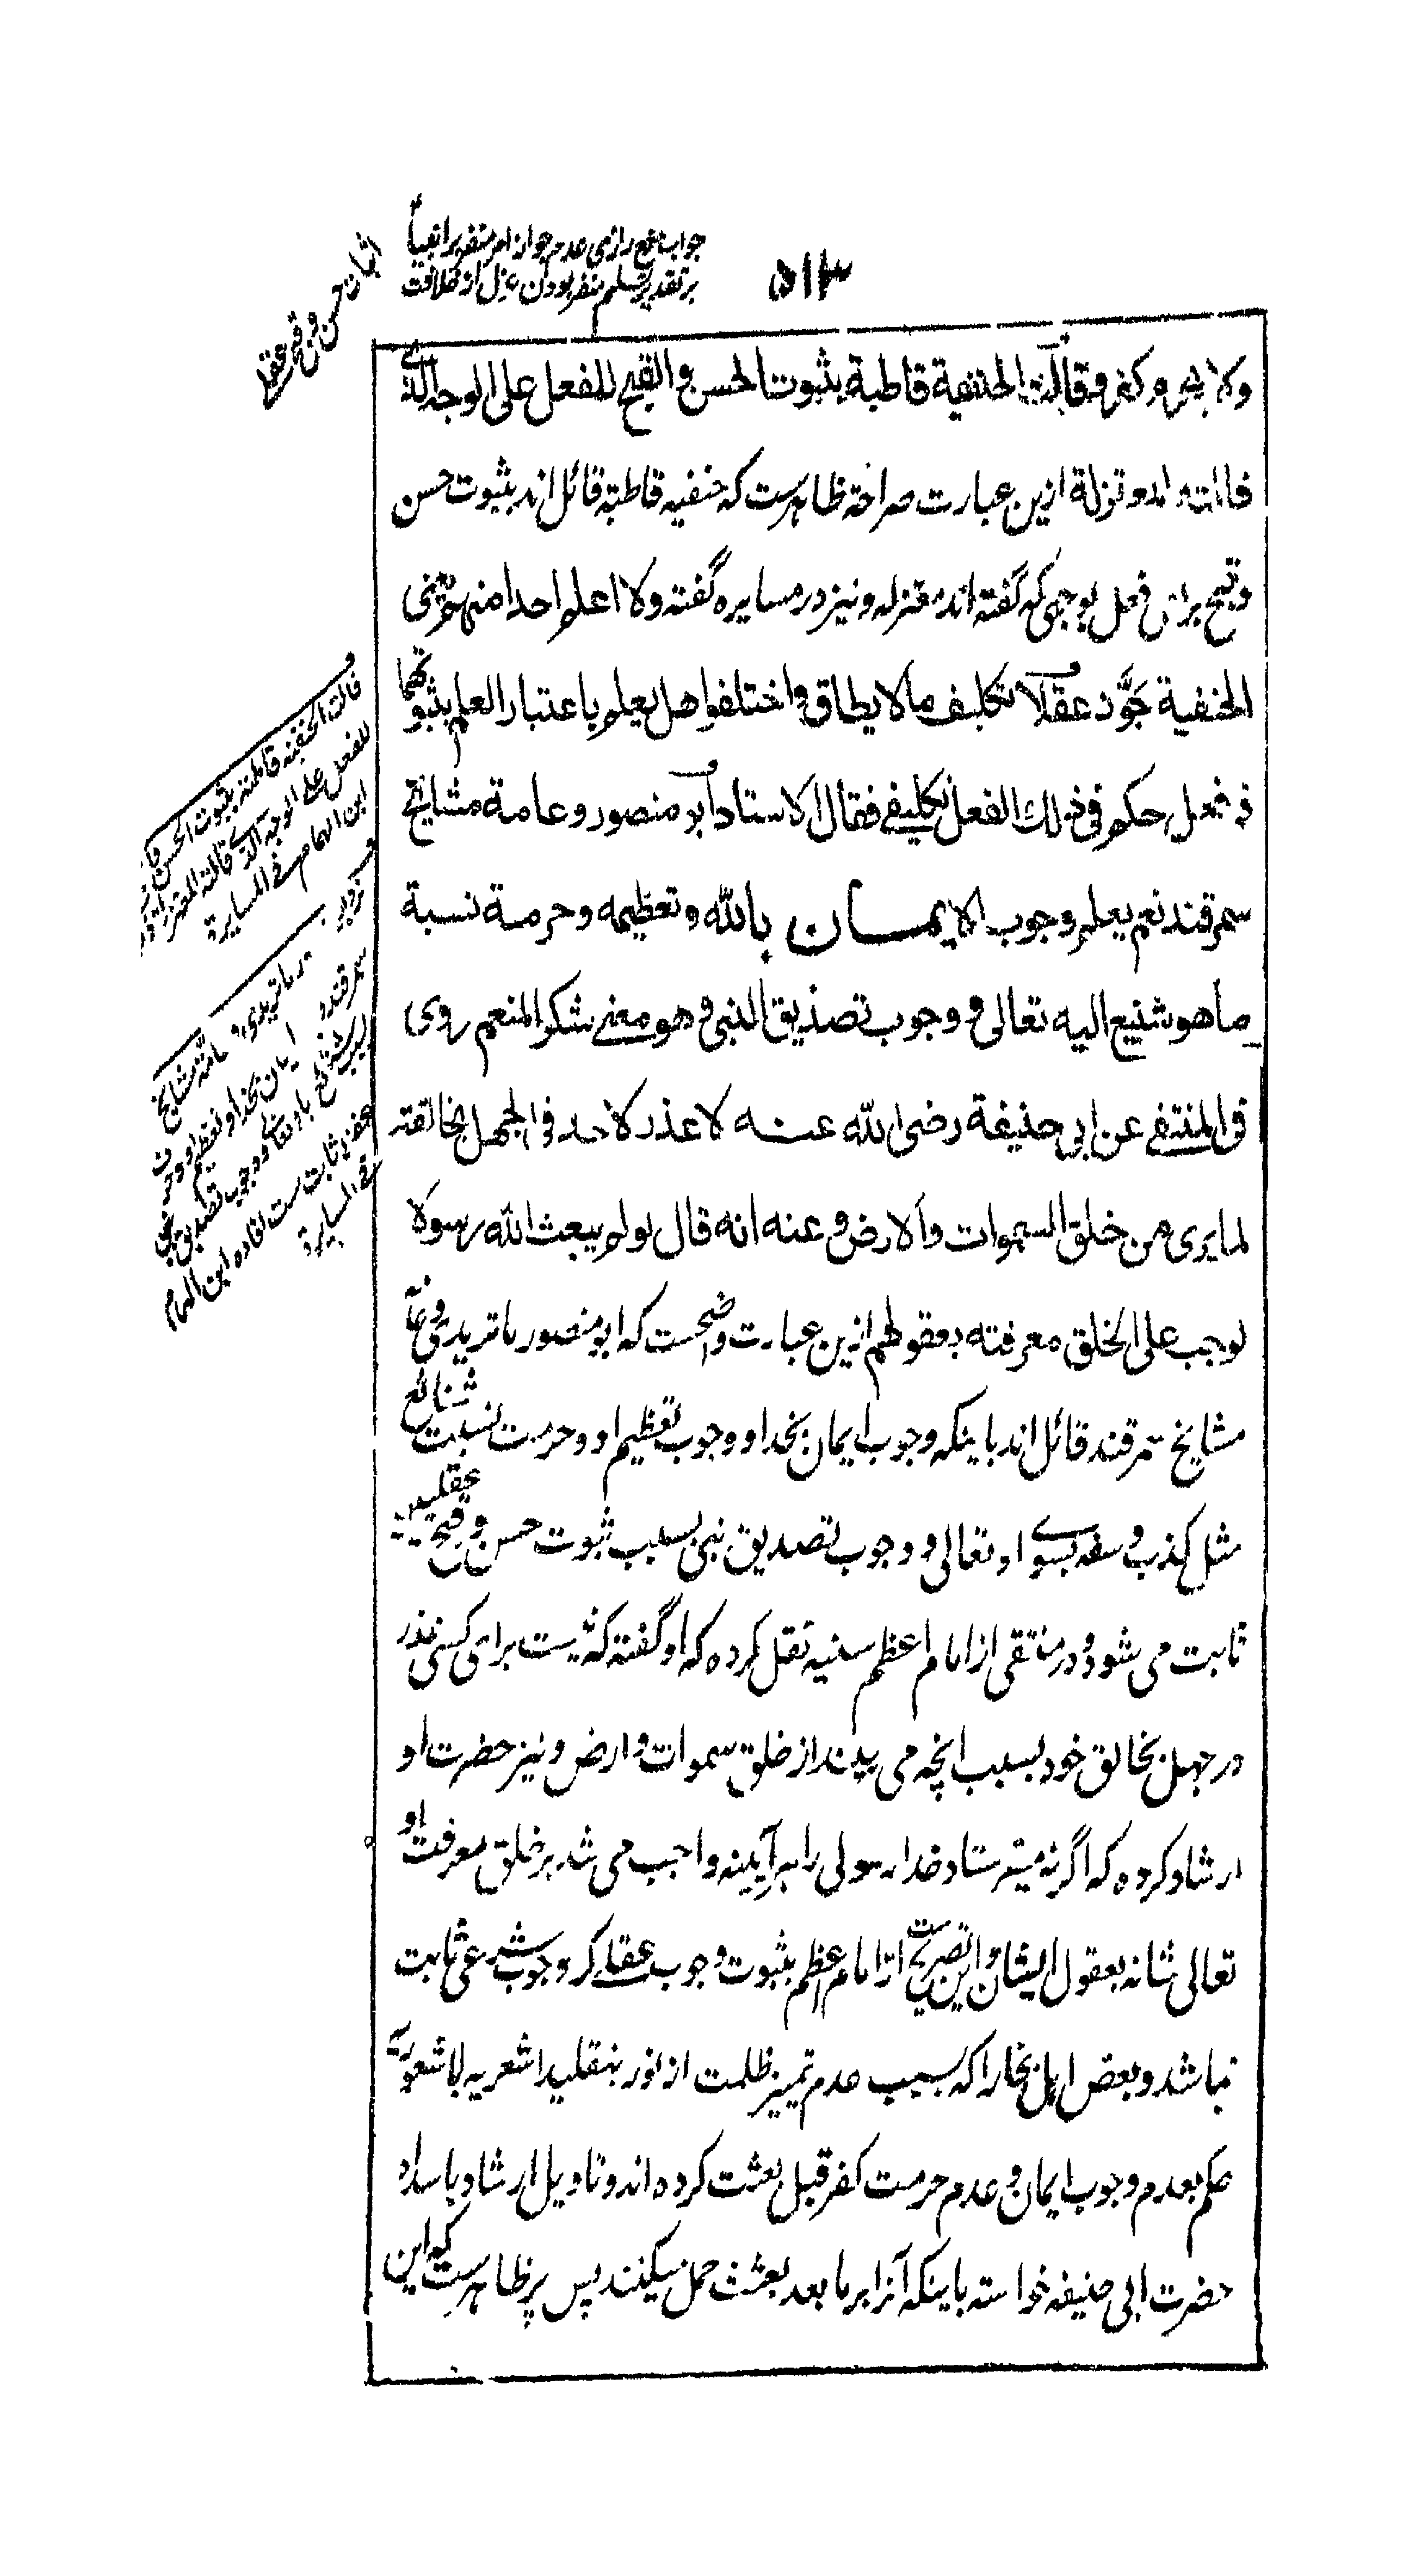 ۵۱۳
جواب منع رازی عدم جواز امر منفر بر انبیا
بر تقدیر تسلیم منفر بودن عزل از خلافت
اثبات حسن و قبح عقلی
ولا یحرم کفر وقالت الحنفیة قاطبة بثبوت الحسن والقبح للفعل علی الوجه الذی
قالته المعتزلة ازین عبارت صراحة ظاهرست که حنفیه قاطبة قائل اند بثبوت حسن
و قبح برای فعل بوجهی که گفته اند معتزله و نیز در مسایره گفته ولا اعلم احدا منهم یعنی
الحنفیة جَوَّز عقلا تکلیف ما لا یطاق واختلفوا هل یعلم باعتبار العلم بثبوتهما
فی فعل حکم فی ذلک الفعل تکلیفی فقال الاستاد ابو منصور وعامة مشایخ
سمرقند نعم یعلم وجوب الایمان بالله وتعظیمه وحرمة نسبة
ما هو شنیع الیه تعالی ووجوب تصدیق النبی وهو معنی شکر المنعم روی
فی المنتقی عن ابی حنیفة رضی الله عنه لا عذر لاحد فی الجهل بخالقه
لما یری من خلق السموات والارض وعنه انه قال لو لم یبعث الله رسولا
لوجب علی الخلق معرفته بعقولهم ازین عبارت واضحست که ابو منصور ماتریدی و عامه
مشایخ سمرقند قائل اند باینکه وجوب ایمان بخدا و وجوب تعظیم او و حرمت نسبت شنائع
مثل کذب و سفه بسوی او تعالی و وجوب تصدیق نبی بسبب ثبوت حسن و قبح عقلیین
ثابت می شود و در منتقی از امام اعظم سنیه نقل کرده که او گفته که نیست برای کسی عذر
در جهل بخالق خود بسبب انچه می بیند از خلق سموات و ارض و نیز حضرت او
ارشاد کرده که اگر نه میفرستاد خدا رسولی را هر آیینه واجب می شد بر خلق معرفت او
تعالی شانه بعقول ایشان و این تصریحست از امام اعظم بثبوت وجوب عقلی گر وجوب شرعی ثابت
نباشد و بعض اهل بخارا که بسبب عدم تمییز ظلمت از نور بتقلید اشعریه لا شعوریه
حکم بعدم وجوب ایمان و عدم حرمت کفر قبل بعثت کرده اند و تاویل ارشاد با سداد
حضرت ابی حنیفه خواسته باینکه آنرا بر ما بعد بعثت حمل میکنند پس پر ظاهرست که این
قالت الحنفیة قاطبة بثبوت الحسن
للفعل علی الوجه الذی قالته المعتزلة
ابن الهمام فی المسایرة
نزد
ماتریدی و عامة مشایخ
سمرقند ایمان بخدا و تعظیم او و حرمت
شنائع باو تعالی و وجوب تصدیق نبی
عقلی ثابت ست افاده ابن الهمام
فی المسایرة